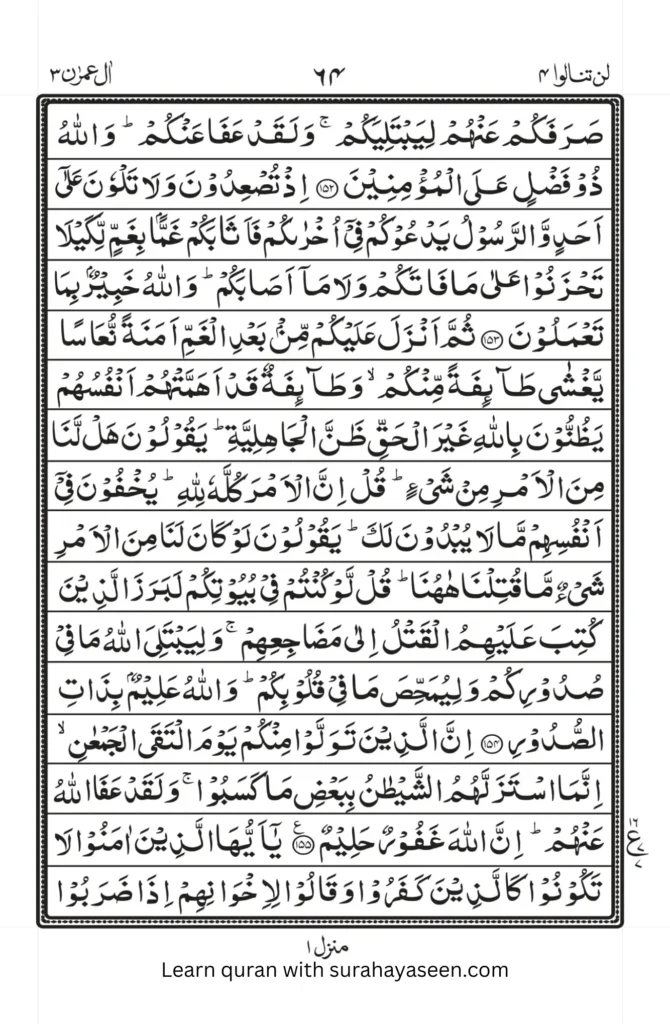 لن تنالوا ۴ ۶۴ اٰل عمرٰن ۳
صَرَفَكُمْ عَنْهُمْ لِيَبْتَلِيَكُمْ ۚ وَلَقَدْ عَفَا عَنْكُمْ ؕ وَاللّٰهُ
ذُوْ فَضْلٍ عَلَى الْمُؤْمِنِيْنَ ﴿۱۵۲﴾ اِذْ تُصْعِدُوْنَ وَلَا تَلْوٗنَ عَلٰٓى
اَحَدٍ وَّالرَّسُوْلُ يَدْعُوْكُمْ فِيْۤ اُخْرٰىكُمْ فَاَثَابَكُمْ غَمًّۢا بِغَمٍّ لِّكَيْلَا
تَحْزَنُوْا عَلٰى مَا فَاتَكُمْ وَلَا مَاۤ اَصَابَكُمْ ؕ وَاللّٰهُ خَبِيْرٌۢ بِمَا
تَعْمَلُوْنَ ﴿۱۵۳﴾ ثُمَّ اَنْزَلَ عَلَيْكُمْ مِّنْۢ بَعْدِ الْغَمِّ اَمَنَةً نُّعَاسًا
يَّغْشٰى طَآىِٕفَةً مِّنْكُمْ ۙ وَطَآىِٕفَةٌ قَدْ اَهَمَّتْهُمْ اَنْفُسُهُمْ
يَظُنُّوْنَ بِاللّٰهِ غَيْرَ الْحَقِّ ظَنَّ الْجَاهِلِيَّةِ ؕ يَقُوْلُوْنَ هَلْ لَّنَا
مِنَ الْاَمْرِ مِنْ شَيْءٍ ؕ قُلْ اِنَّ الْاَمْرَ كُلَّهٗ لِلّٰهِ ؕ يُخْفُوْنَ فِيْۤ
اَنْفُسِهِمْ مَّا لَا يُبْدُوْنَ لَكَ ؕ يَقُوْلُوْنَ لَوْ كَانَ لَنَا مِنَ الْاَمْرِ
شَيْءٌ مَّا قُتِلْنَا هٰهُنَا ؕ قُلْ لَّوْ كُنْتُمْ فِيْ بُيُوْتِكُمْ لَبَرَزَ الَّذِيْنَ
كُتِبَ عَلَيْهِمُ الْقَتْلُ اِلٰى مَضَاجِعِهِمْ ۚ وَلِيَبْتَلِيَ اللّٰهُ مَا فِيْ
صُدُوْرِكُمْ وَلِيُمَحِّصَ مَا فِيْ قُلُوْبِكُمْ ؕ وَاللّٰهُ عَلِيْمٌۢ بِذَاتِ
الصُّدُوْرِ ﴿۱۵۴﴾ اِنَّ الَّذِيْنَ تَوَلَّوْا مِنْكُمْ يَوْمَ الْتَقَى الْجَمْعٰنِ ۙ
اِنَّمَا اسْتَزَلَّهُمُ الشَّيْطٰنُ بِبَعْضِ مَا كَسَبُوْا ۚ وَلَقَدْ عَفَا اللّٰهُ
عَنْهُمْ ؕ اِنَّ اللّٰهَ غَفُوْرٌ حَلِيْمٌ ﴿۱۵۵﴾ۧ يٰۤاَيُّهَا الَّذِيْنَ اٰمَنُوْا لَا
تَكُوْنُوْا كَالَّذِيْنَ كَفَرُوْا وَقَالُوْا لِاِخْوَانِهِمْ اِذَا ضَرَبُوْا
منزل ۱
Learn quran with surahayaseen.com